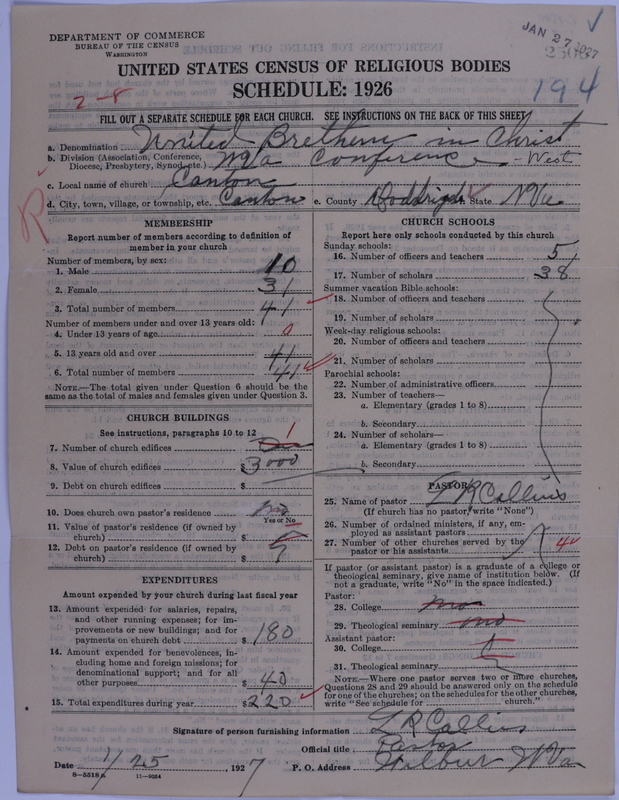 DEPARTMENT OF COMMERCE
BUREAU OF THE CENSUS
WASHINGTON
JAN 27 1927
194
UNITED STATES CENSUS OF RELIGIOUS BODIES
SCHEDULE: 1926
2-8
FILL OUT A SEPARATE SCHEDULE FOR EACH CHURCH. SEE INSTRUCTIONS ON THE BACK OF THIS SHEET
a. Denomination United Brethern in Christ
b. Division (Association, Conference, Diocese, Presbytery, Synod, etc.) W Va Conference - West
c. Local name of church Canton
d. City, town, village, or township, etc. Canton e. County Doddridge State W Va
R
MEMBERSHIP
Report number of members according to definition of member in your church
Number of members, by sex:
1. Male 10
2. Female 31
3. Total number of members 41
Number of members under and over 13 years old:
4. Under 13 years of age 0
5. 13 years old and over 41
6. Total number of members 41
NOTE.—The total given under Question 6 should be the same as the total of males and females given under Question 3.
CHURCH BUILDINGS
See instructions, paragraphs 10 to 12
7. Number of church edifices 1
8. Value of church edifices $3000
9. Debt on church edifices $
10. Does church own pastor's residence no
Yes or No
11. Value of pastor's residence (if owned by church) $
12. Debt on pastor's residence (if owned by church) $
EXPENDITURES
Amount expended by your church during last fiscal year
13. Amount expended for salaries, repairs, and other running expenses; for improvements or new buildings; and for payments on church debt $180
14. Amount expended for benevolences, including home and foreign missions; for denominational support; and for all other purposes $40
15. Total expenditures during year $220
CHURCH SCHOOLS
Report here only schools conducted by this church
Sunday schools:
16. Number of officers and teachers 5
17. Number of scholars 38
Summer vacation Bible schools:
18. Number of officers and teachers
19. Number of scholars
Week-day religious schools:
20. Number of officers and teachers
21. Number of scholars
Parochial schools:
22. Number of administrative officers
23. Number of teachers—
a. Elementary (grades 1 to 8)
b. Secondary
24. Number of scholars—
a. Elementary (grades 1 to 8)
b. Secondary
PASTOR
25. Name of pastor L R Collins
(If church has no pastor, write "None")
26. Number of ordained ministers, if any, employed as assistant pastors
27. Number of other churches served by the pastor or his assistants 4
If pastor (or assistant pastor) is a graduate of a college or theological seminary, give name of institution below. (If not a graduate, write "No" in the space indicated.)
Pastor:
28. College no
29. Theological seminary no
Assistant pastor:
30. College
31. Theological seminary
NOTE.—Where one pastor serves two or more churches, Questions 28 and 29 should be answered only on the schedule for one of the churches; on the schedules for the other churches, write "See schedule for church."
Signature of person furnishing information L R Collins
Official title Pastor
Date 1/25, 1927 P. O. Address Wilbur W Va
8—5518a 11—9034